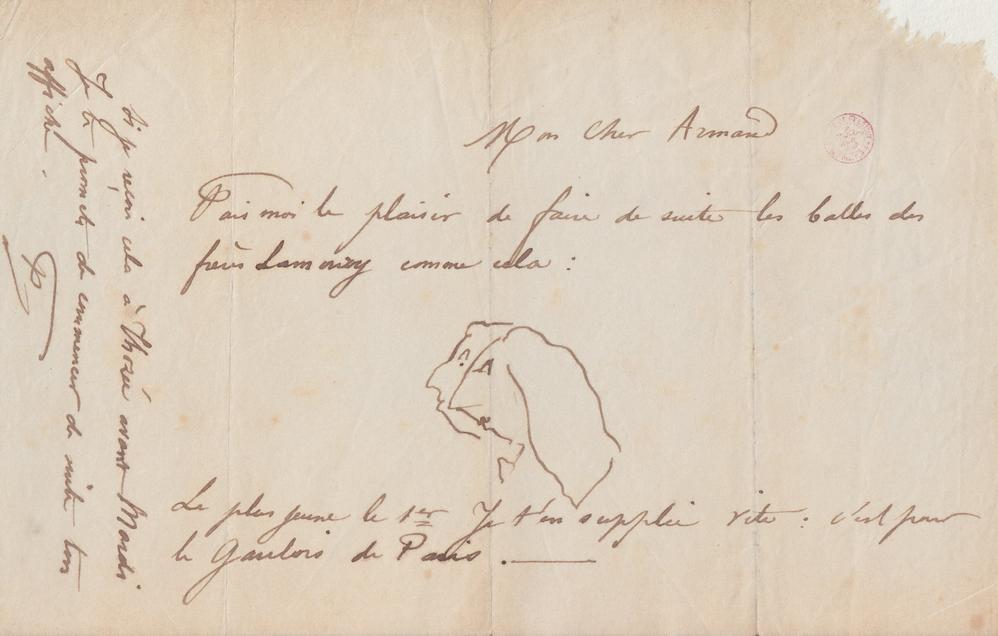 Mon cher Armand
Fais moi le plaisir de faire de suite les balles des
frères Lamoury comme cela :
Le plus jeune le 1er Je t'en supplie vite : c'est pour
le Gaulois de Paris .
Si je reçois cela à Thorée avant Mardi
Je te promets de commencer de suite ton
affiche .